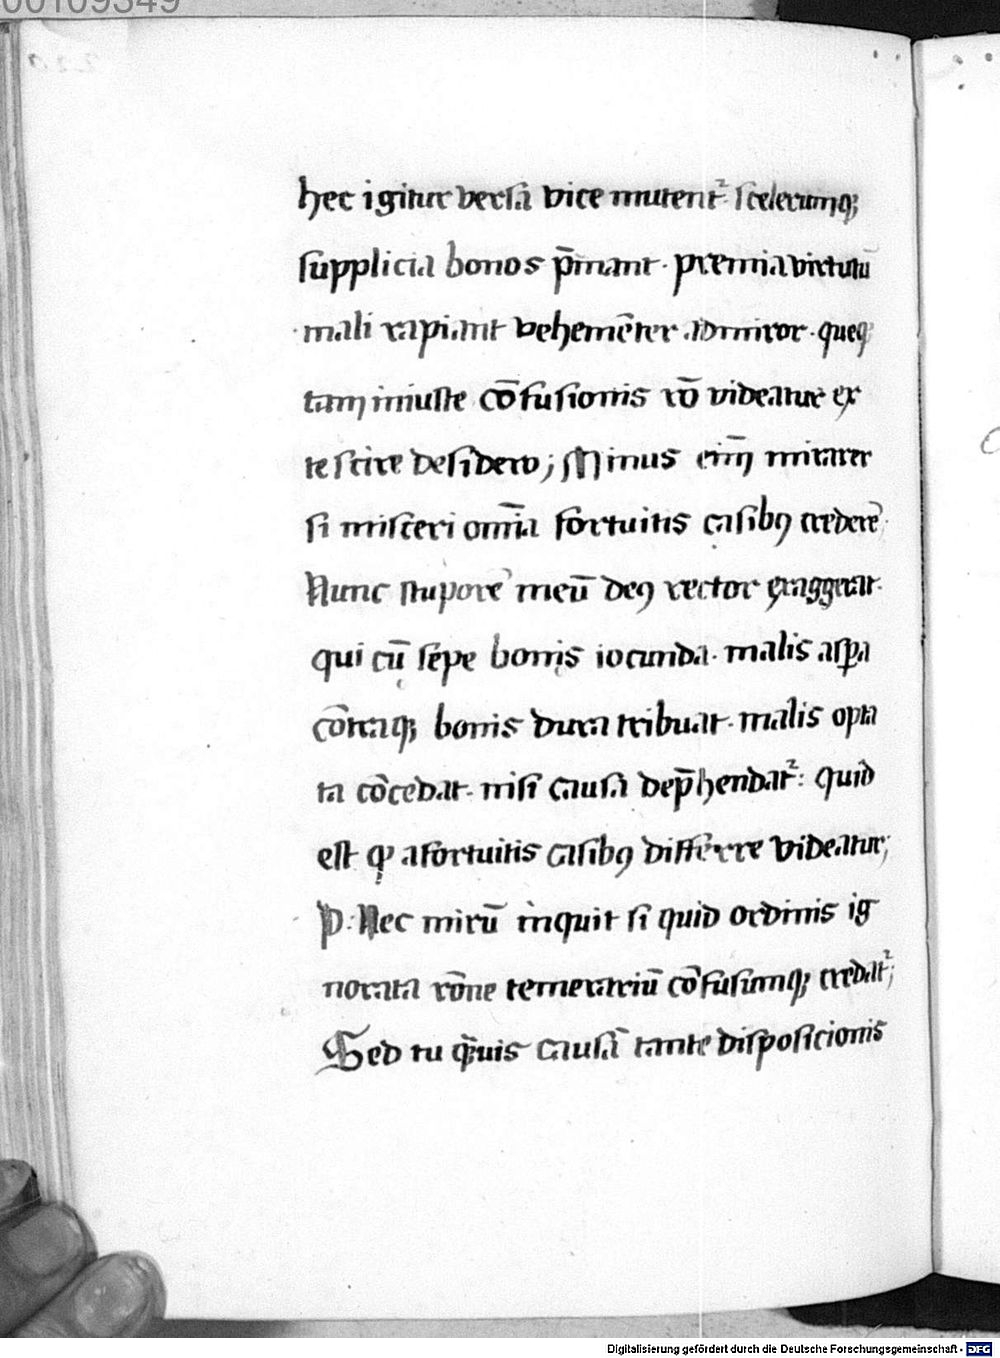 00109349
hec igitur versa vice mutent̉. scelerumqꝫ
supplicia bonos p̄mant. premia virtutū
mali rapiant vehemēter admiror. queqꝫ
tam iniuste cōfusionis rō videatur ex
te scire desidero; Minus eim̄ mirarer
si misceri om̄ia fortuitis casibꝰ crederē.
Nunc stuporē meū deꝰ rector exaggerat.
qui cū sepe bonis iocunda. malis aspa
cōtraqꝫ bonis dura tribuat. malis opta
ta cōcedat. nisi causa dep̄hendat̉: quid
est qđ a fortuitis casibꝰ differre videatur;
P. Nec mirū inquit si quid ordinis ig
norata rōne temerariū cōfusumqꝫ credat̉;
Sed tu qͣuis causā tante disposicionis
Digitalisierung gefördert durch die Deutsche Forschungsgemeinschaft - DFG